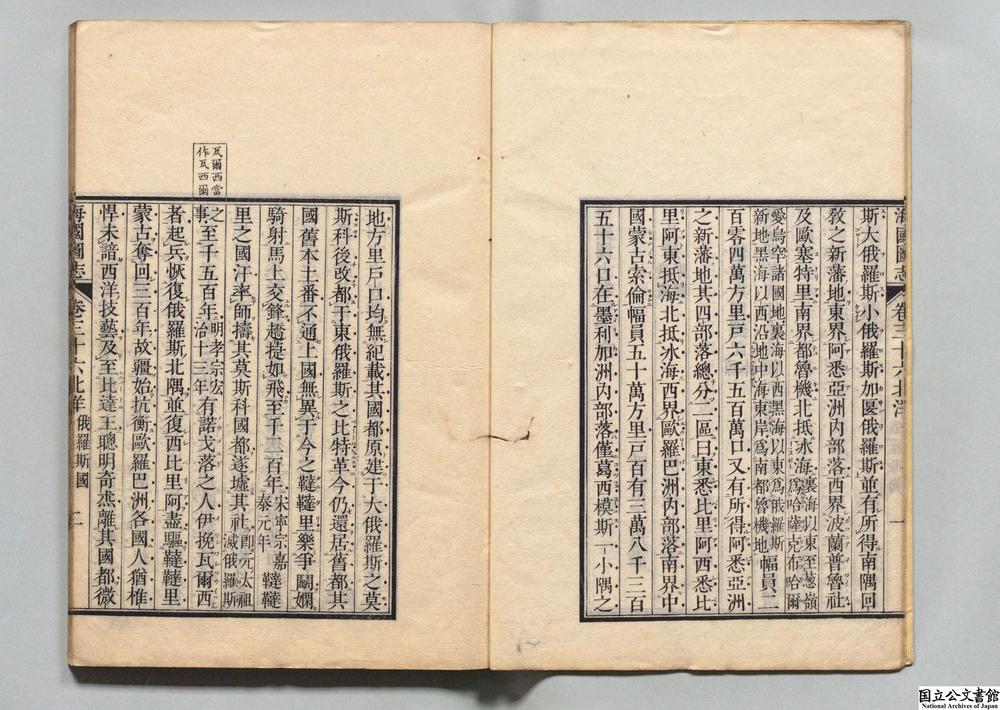 海國圖志
卷三十六北洋
一
斯大俄羅斯小俄羅斯加匽俄羅斯並有所得南隅回
敎之新藩地東界阿悉亞洲內部落西界波蘭普魯社
及歐塞特里南界都魯機北抵氷海裏海以東至葱嶺爲哈薩克布哈爾
愛烏罕諸國地裏海以西黑海以東爲俄羅斯新地黑海以西沿地中海東岸爲南都魯機地幅員二
百零四萬方里戸六千五百萬口又有所得阿悉亞洲
之新藩地其四部落總分二區曰東悉比里阿西悉比
里阿東抵海北抵氷海西界歐羅巴洲內部落南界中
國蒙古索倫幅員五十萬方里戸百有三萬八千三百
五十六口在墨利加洲內部落僅葛西模斯一小隅之
地方里戸口均無紀載其國都原建于大俄羅斯之莫
斯科後改都于東俄羅斯之比特革今仍還居舊都其
國舊本土番不通上國無異于今之韃韃里樂爭鬭嫻
騎射馬上交鋒趫捷如飛至千二百年宋寧宗嘉泰元年韃韃
里之國汗率師擣其莫斯科國都遂墟其社卽元太祖滅俄羅斯
之事至千五百年明孝宗宏治十三年有諾戈落之人伊挽瓦爾西
者起兵恢復俄羅斯北隅並復西比里阿盡驅韃韃里
蒙古奪回三百年故疆始抗衡歐羅巴洲各國人猶椎
悍未諳西洋技藝及至比達王聰明奇傑離其國都微
瓦爾西當
作瓦西爾
海國圖志
卷三十六北洋 俄羅斯國
二
国立公文書館
National Archives of Japan